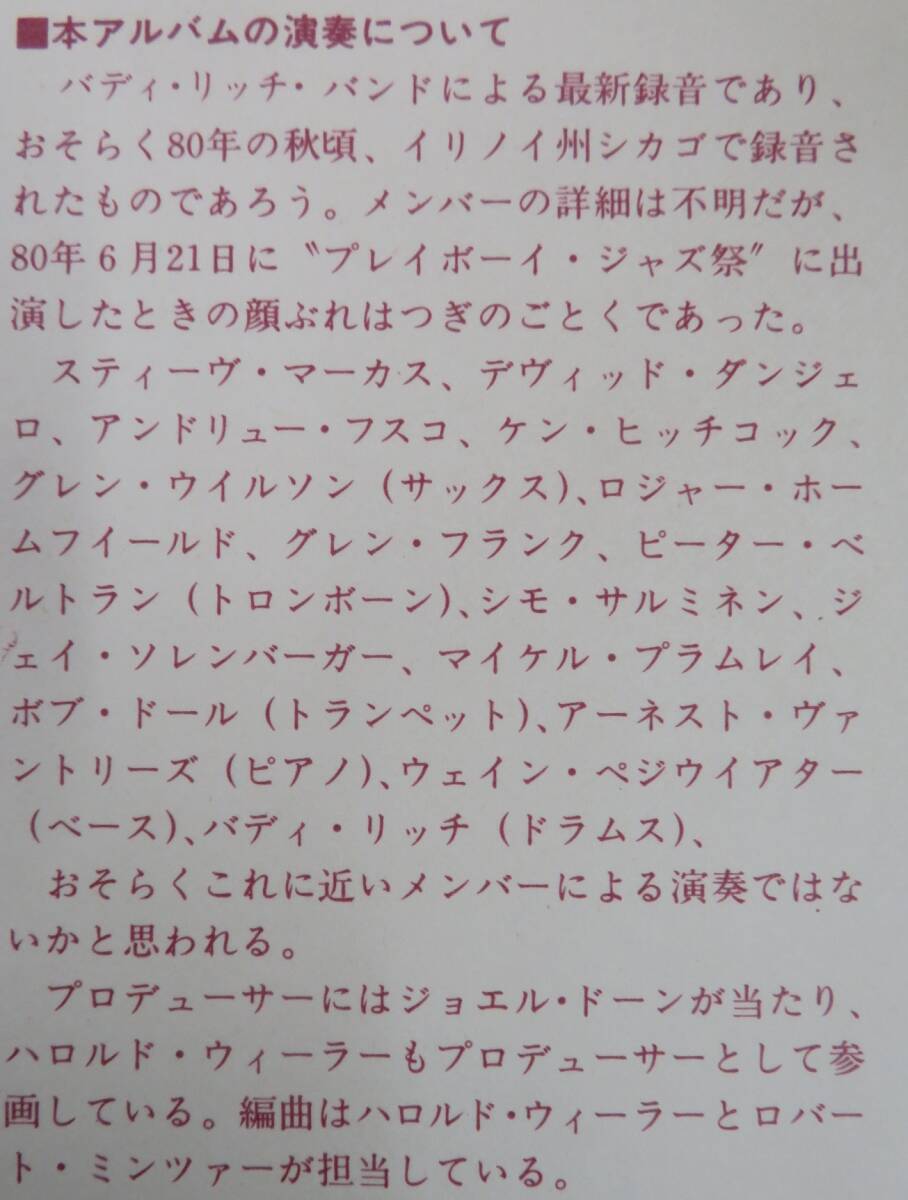 ■本アルバムの演奏について
バディ・リッチ・バンドによる最新録音であり、
おそらく80年の秋頃、イリノイ州シカゴで録音さ
れたものであろう。メンバーの詳細は不明だが、
80年6月21日に〝プレイボーイ・ジャズ祭〟に出
演したときの顔ぶれはつぎのごとくであった。
スティーヴ・マーカス、デヴィッド・ダンジェ
ロ、アンドリュー・フスコ、ケン・ヒッチコック、
グレン・ウイルソン（サックス）、ロジャー・ホー
ムフイールド、グレン・フランク、ピーター・ベ
ルトラン（トロンボーン）、シモ・サルミネン、ジ
ェイ・ソレンバーガー、マイケル・プラムレイ、
ボブ・ドール（トランペット）、アーネスト・ヴァ
ントリーズ（ピアノ）、ウェイン・ペジウイアター
（ベース）、バディ・リッチ（ドラムス）、
おそらくこれに近いメンバーによる演奏ではな
いかと思われる。
プロデューサーにはジョエル・ドーンが当たり、
ハロルド・ウィーラーもプロデューサーとして参
画している。編曲はハロルド・ウィーラーとロバー
ト・ミンツァーが担当している。